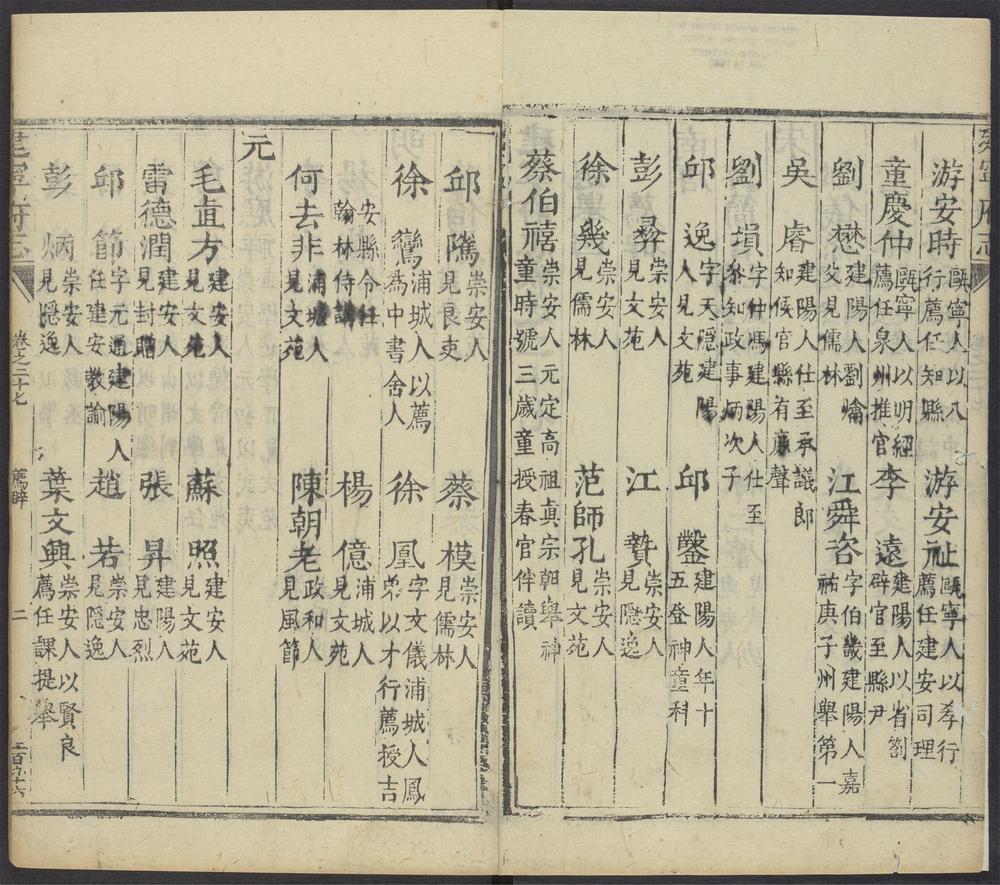 建寧府志
游安時 甌寧人以八行薦任知縣 游安祉 甌寧人以孝行薦任建安司理
童慶仲 甌寧人以明經薦任泉州推官 李遠 建陽人以省劄辟官至縣尹
劉懋 建陽人劉爚父見儒林 江舜咨 字伯畿建陽人嘉祐庚子州舉第一
吳睿 建陽人仕至承議郎知侯官縣有廉聲
劉塤 字仲馮建陽人仕至叅知政事炳次子
邱逸 字天隱建陽人見文苑 邱鑿 建陽人年十五登神童科
彭彝 崇安人見文苑 江贄 崇安人見隱逸
徐幾 崇安人見儒林 范師孔 崇安人見文苑
蔡伯禧 崇安人元定高祖真宗朝舉神童時號三歲童授春官伴讀
邱隲 崇安人見良吏 蔡模 崇安人見儒林
徐鸞 浦城人以薦爲中書舍人 徐凰 字文儀浦城人鳳弟以才行薦授吉
安縣令任翰林侍講 楊億 浦城人見文苑
何去非 浦城人見文苑 陳朝老 政和人見風節
元
毛直方 建安人見文苑 蘇照 建安人見文苑
雷德潤 建安人見封贈 張昇 建陽人見忠烈
邱節 字元通建陽人任建安教諭 趙若 崇安人見隱逸
彭炳 崇安人見隱逸 葉文興 崇安人以賢良薦任課提舉
建寧府志 卷之二十七 薦辟 二 二百九十六